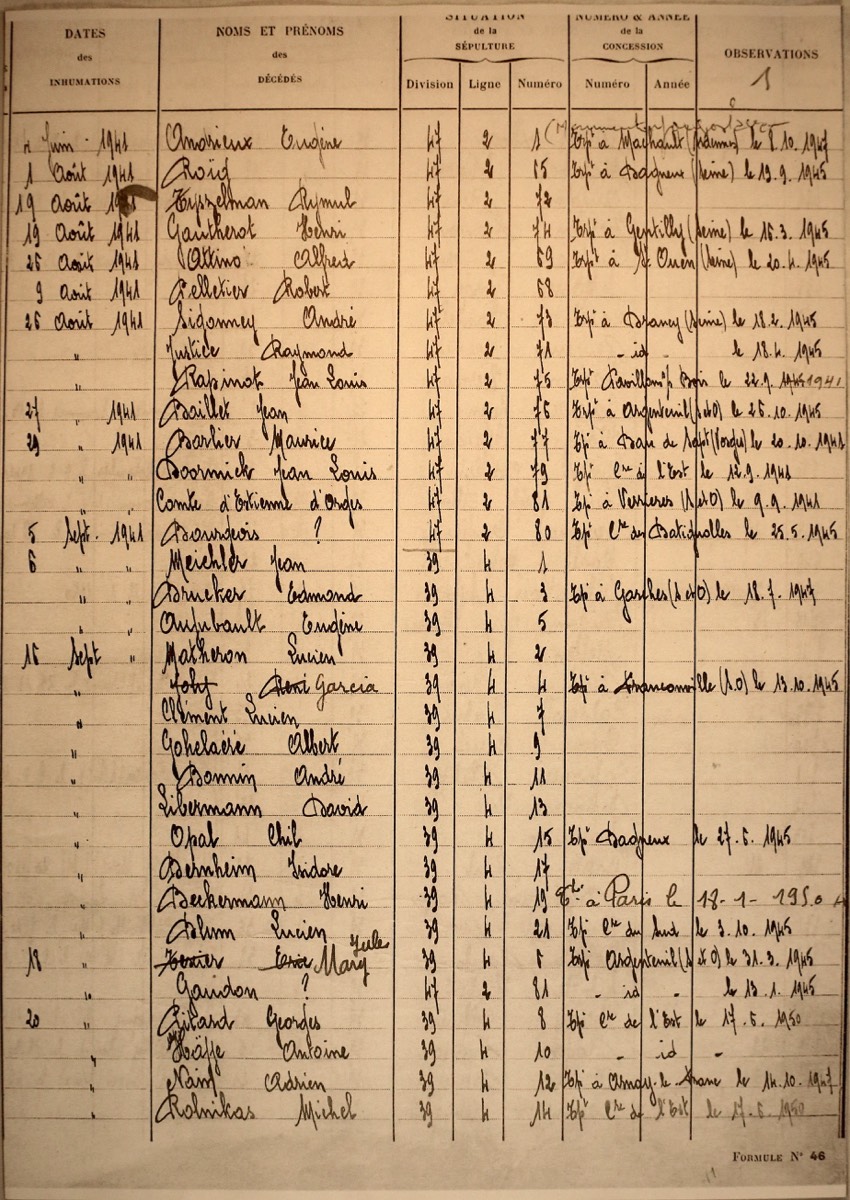 DATES des INHUMATIONS
NOMS ET PRÉNOMS des DÉCÉDÉS
SITUATION de la SÉPULTURE
NUMÉRO & ANNÉE de la CONCESSION
OBSERVATIONS
1
Division Ligne Numéro Numéro Année
Juin 1941 Andrieux Eugène 47 2 1 Tspt à Machault (Ardennes) le 8.10.1947
1 Août 1941 Roïd 47 2 65 Tspt à Bagneux (Seine) le 19.9.1945
19 Août 1941 Tyszelman Rymul 47 2 72
19 Août 1941 Gautherot Henri 47 2 74 Tspt à Gentilly (Seine) le 16.3.1945
26 Août 1941 Ottino Alfred 47 2 69 Tspt à St Ouen (Seine) le 20.4.1945
9 Août 1941 Pelletier Robert 47 2 68
26 Août 1941 Sigonney André 47 2 73 Tspt à Drancy (Seine) le 18.2.1945
" Justice Raymond 47 2 71 - id - le 18.4.1945
" Rapinat Jean Louis 47 2 75 Tspt Pavillons s/s Bois le 22.9.1945 1941
27 " 1941 Baillet Jean 47 2 76 Tspt à Argenteuil (S et O) le 26.10.1945
29 " 1941 Barlier Maurice 47 2 77 Tspt à Ban de Sapt (Vosges) le 20.10.1941
" " Doornick Jean Louis 47 2 79 Tspt Cre de l'Est le 12.9.1941
" " Comte d'Estienne d'Orves 47 2 81 Tspt à Verrières (S et O) le 9.9.1941
5 Sept. 1941 Bourgeois ? 47 2 80 Tspt Cre des Batignolles le 25.5.1945
6 " " Meichler Jean 39 4 1
" " Brucker Edmond 39 4 3 Tspt à Garches (S et O) le 18.7.1947
" " Aufubault Eugène 39 4 5
16 Sept " Matheron Lucien 39 4 2
" Joly René Garcia 39 4 4 Tspt à Franconville (S.O) le 13.10.1945
" Clément Lucien 39 4 7
" Gohelaéré Albert 39 4 9
" Bonnin André 39 4 11
" Libermann David 39 4 13
" Opal Chil 39 4 15 Tspt Bagneux le 27.6.1945
" Bernheim Isidore 39 4 17
" Beckermann Henri 39 4 19 à Paris le 18-1-1950
" Blum Lucien 39 4 21 Tspt Cre du Sud le 3.10.1945
18 " Mary Jules 39 4 6 Tspt Argenteuil (S et O) le 31.3.1945
" Gaudon ? 47 2 81 - id - le 13.1.1945
20 " Pitard Georges 39 4 8 Tspt Cre de l'Est le 17.6.1950
" Häjje Antoine 39 4 10 - id -
" Nain Adrien 39 4 12 Tspt à Arnay-le- le 14.10.1947
" Rolnikas Michel 39 4 14 Tspt Cre de l'Est le 17.6.1950
FORMULE N° 46